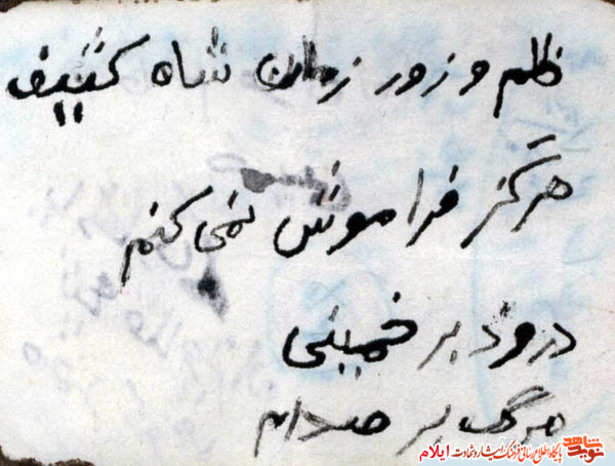 ظلم و زور زمان شاه کثیف
هرگز فراموش نمی کنم
درود بر خمینی
مرگ بر صدام
نوید شاهد
پایگاه اطلاع رسانی فرهنگ ایثار و شهادت ایلام